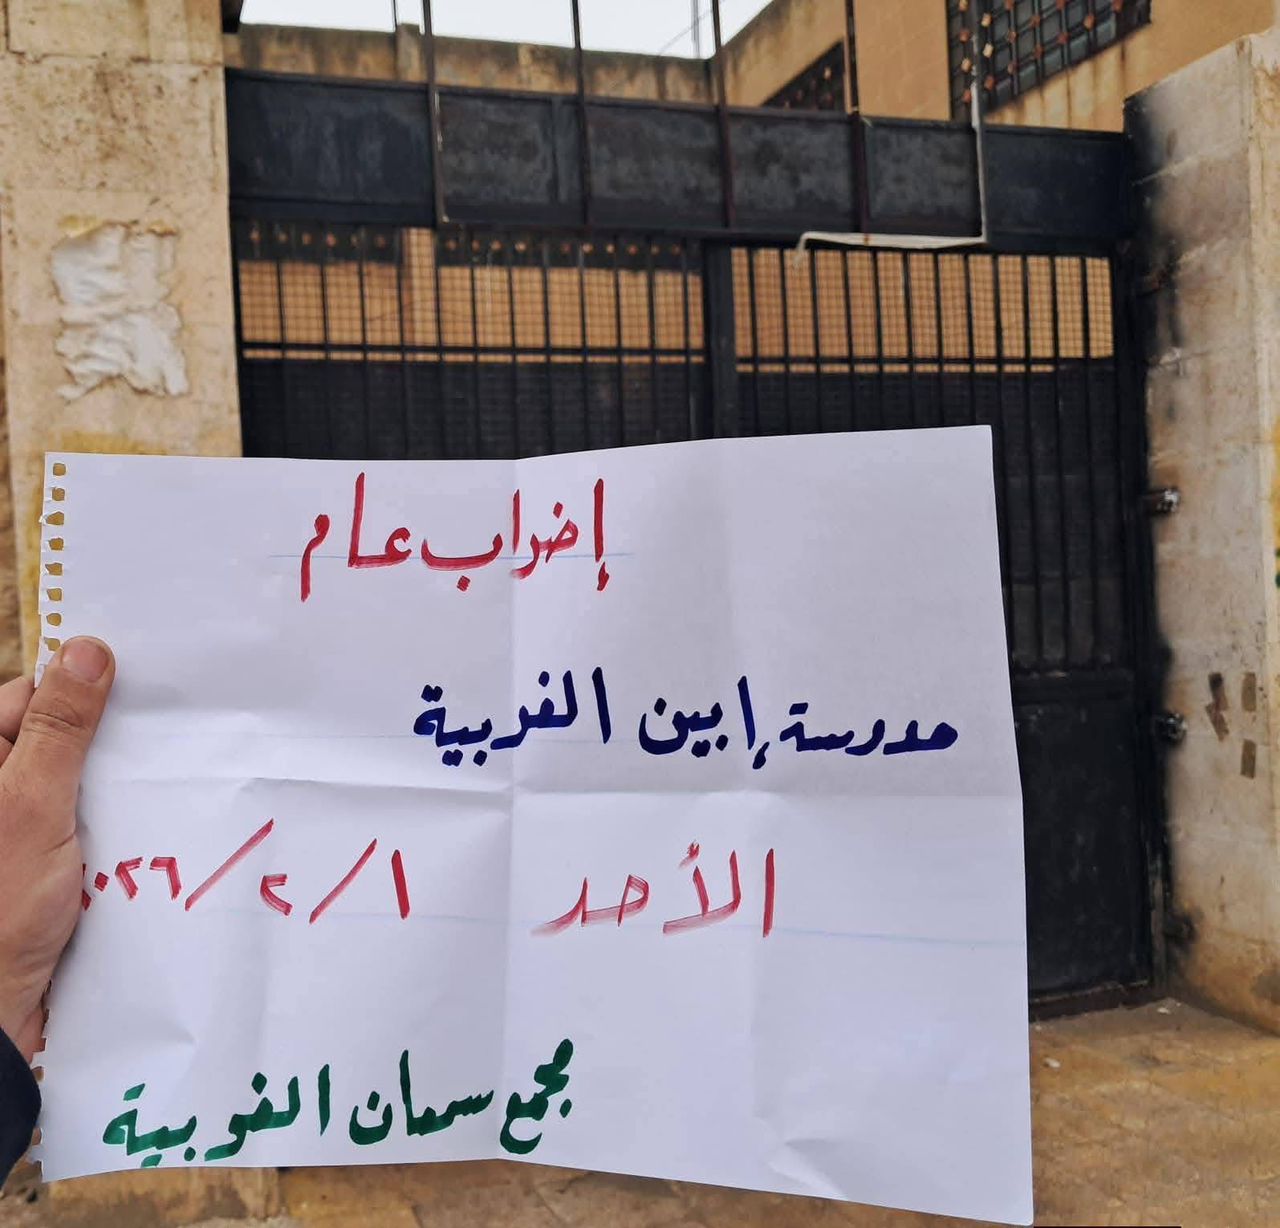 إضراب عام
مدرسة إبين الغربية
الأحد ١/٢/٢٠٢٦
مجمع سمعان الغربية